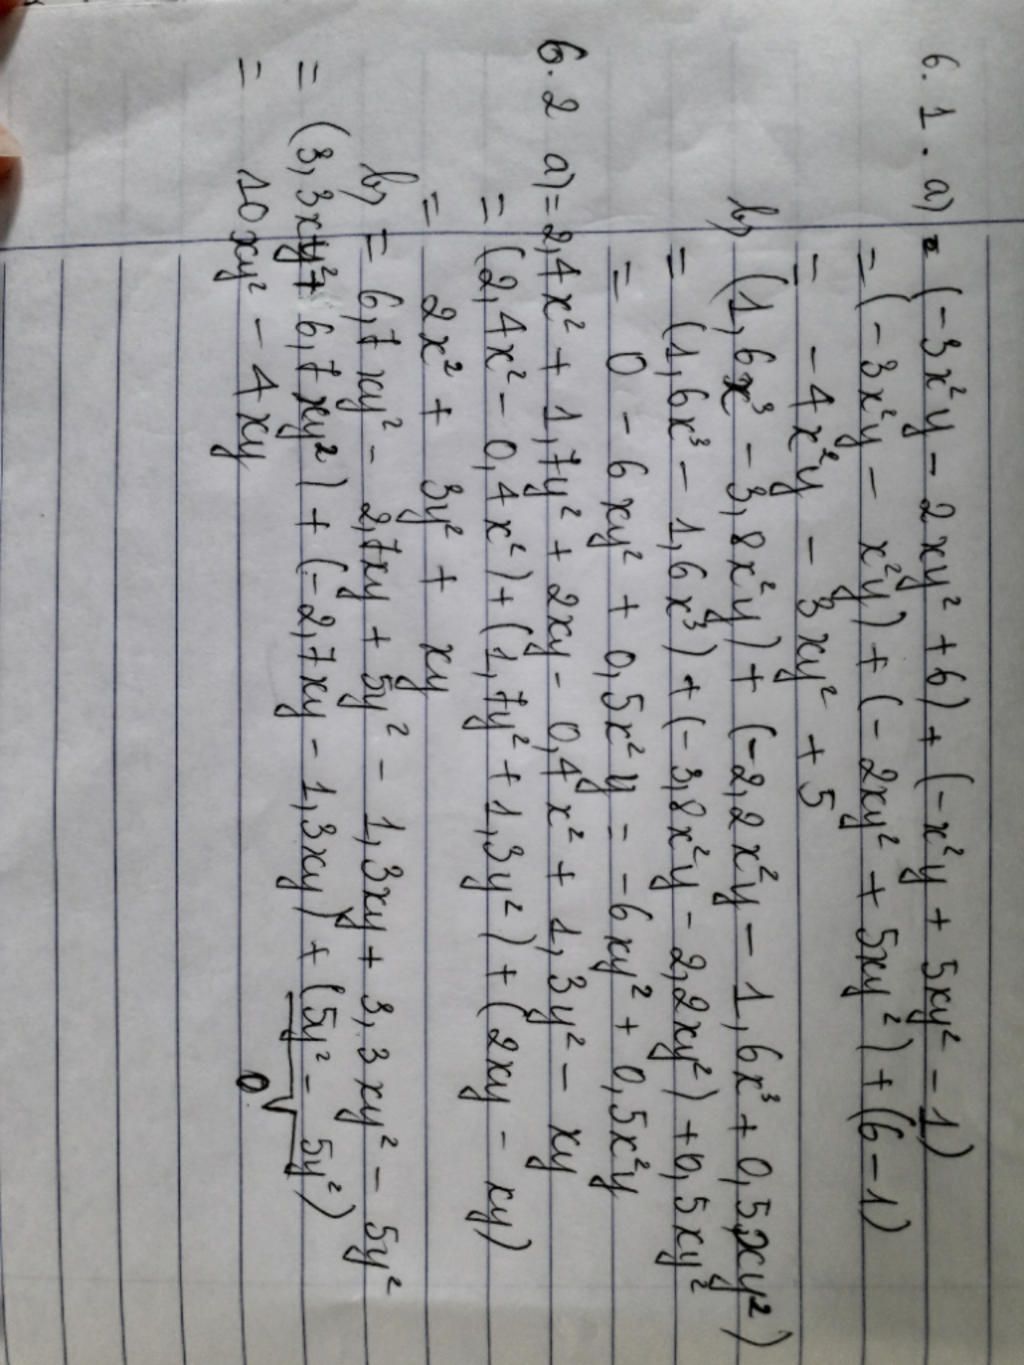 6.1. a) = (-3x²y - 2xy² + 6) + (-x²y + 5xy² - 1)
= (-3x²y - x²y) + (-2xy² + 5xy²) + (6 - 1)
= -4x²y - 3xy² + 5
b) (1,6x³ - 3,8x²y) + (-2,2x²y - 1,6x³ + 0,5xy²)
= (1,6x³ - 1,6x³) + (-3,8x²y - 2,2xy²) + 0,5xy²
= 0 - 6xy² + 0,5x²y = -6xy² + 0,5x²y
6.2 a) = 2,4x² + 1,7y² + 2xy - 0,4x² + 1,3y² - xy
= (2,4x² - 0,4x²) + (1,7y² + 1,3y²) + (2xy - xy)
= 2x² + 3y² + xy
b) = 6,7xy² - 2,7xy + 5y² - 1,3xy + 3,3xy² - 5y²
= (3,3xy² + 6,7xy²) + (-2,7xy - 1,3xy) + (5y² - 5y²)
= 10xy² - 4xy 0